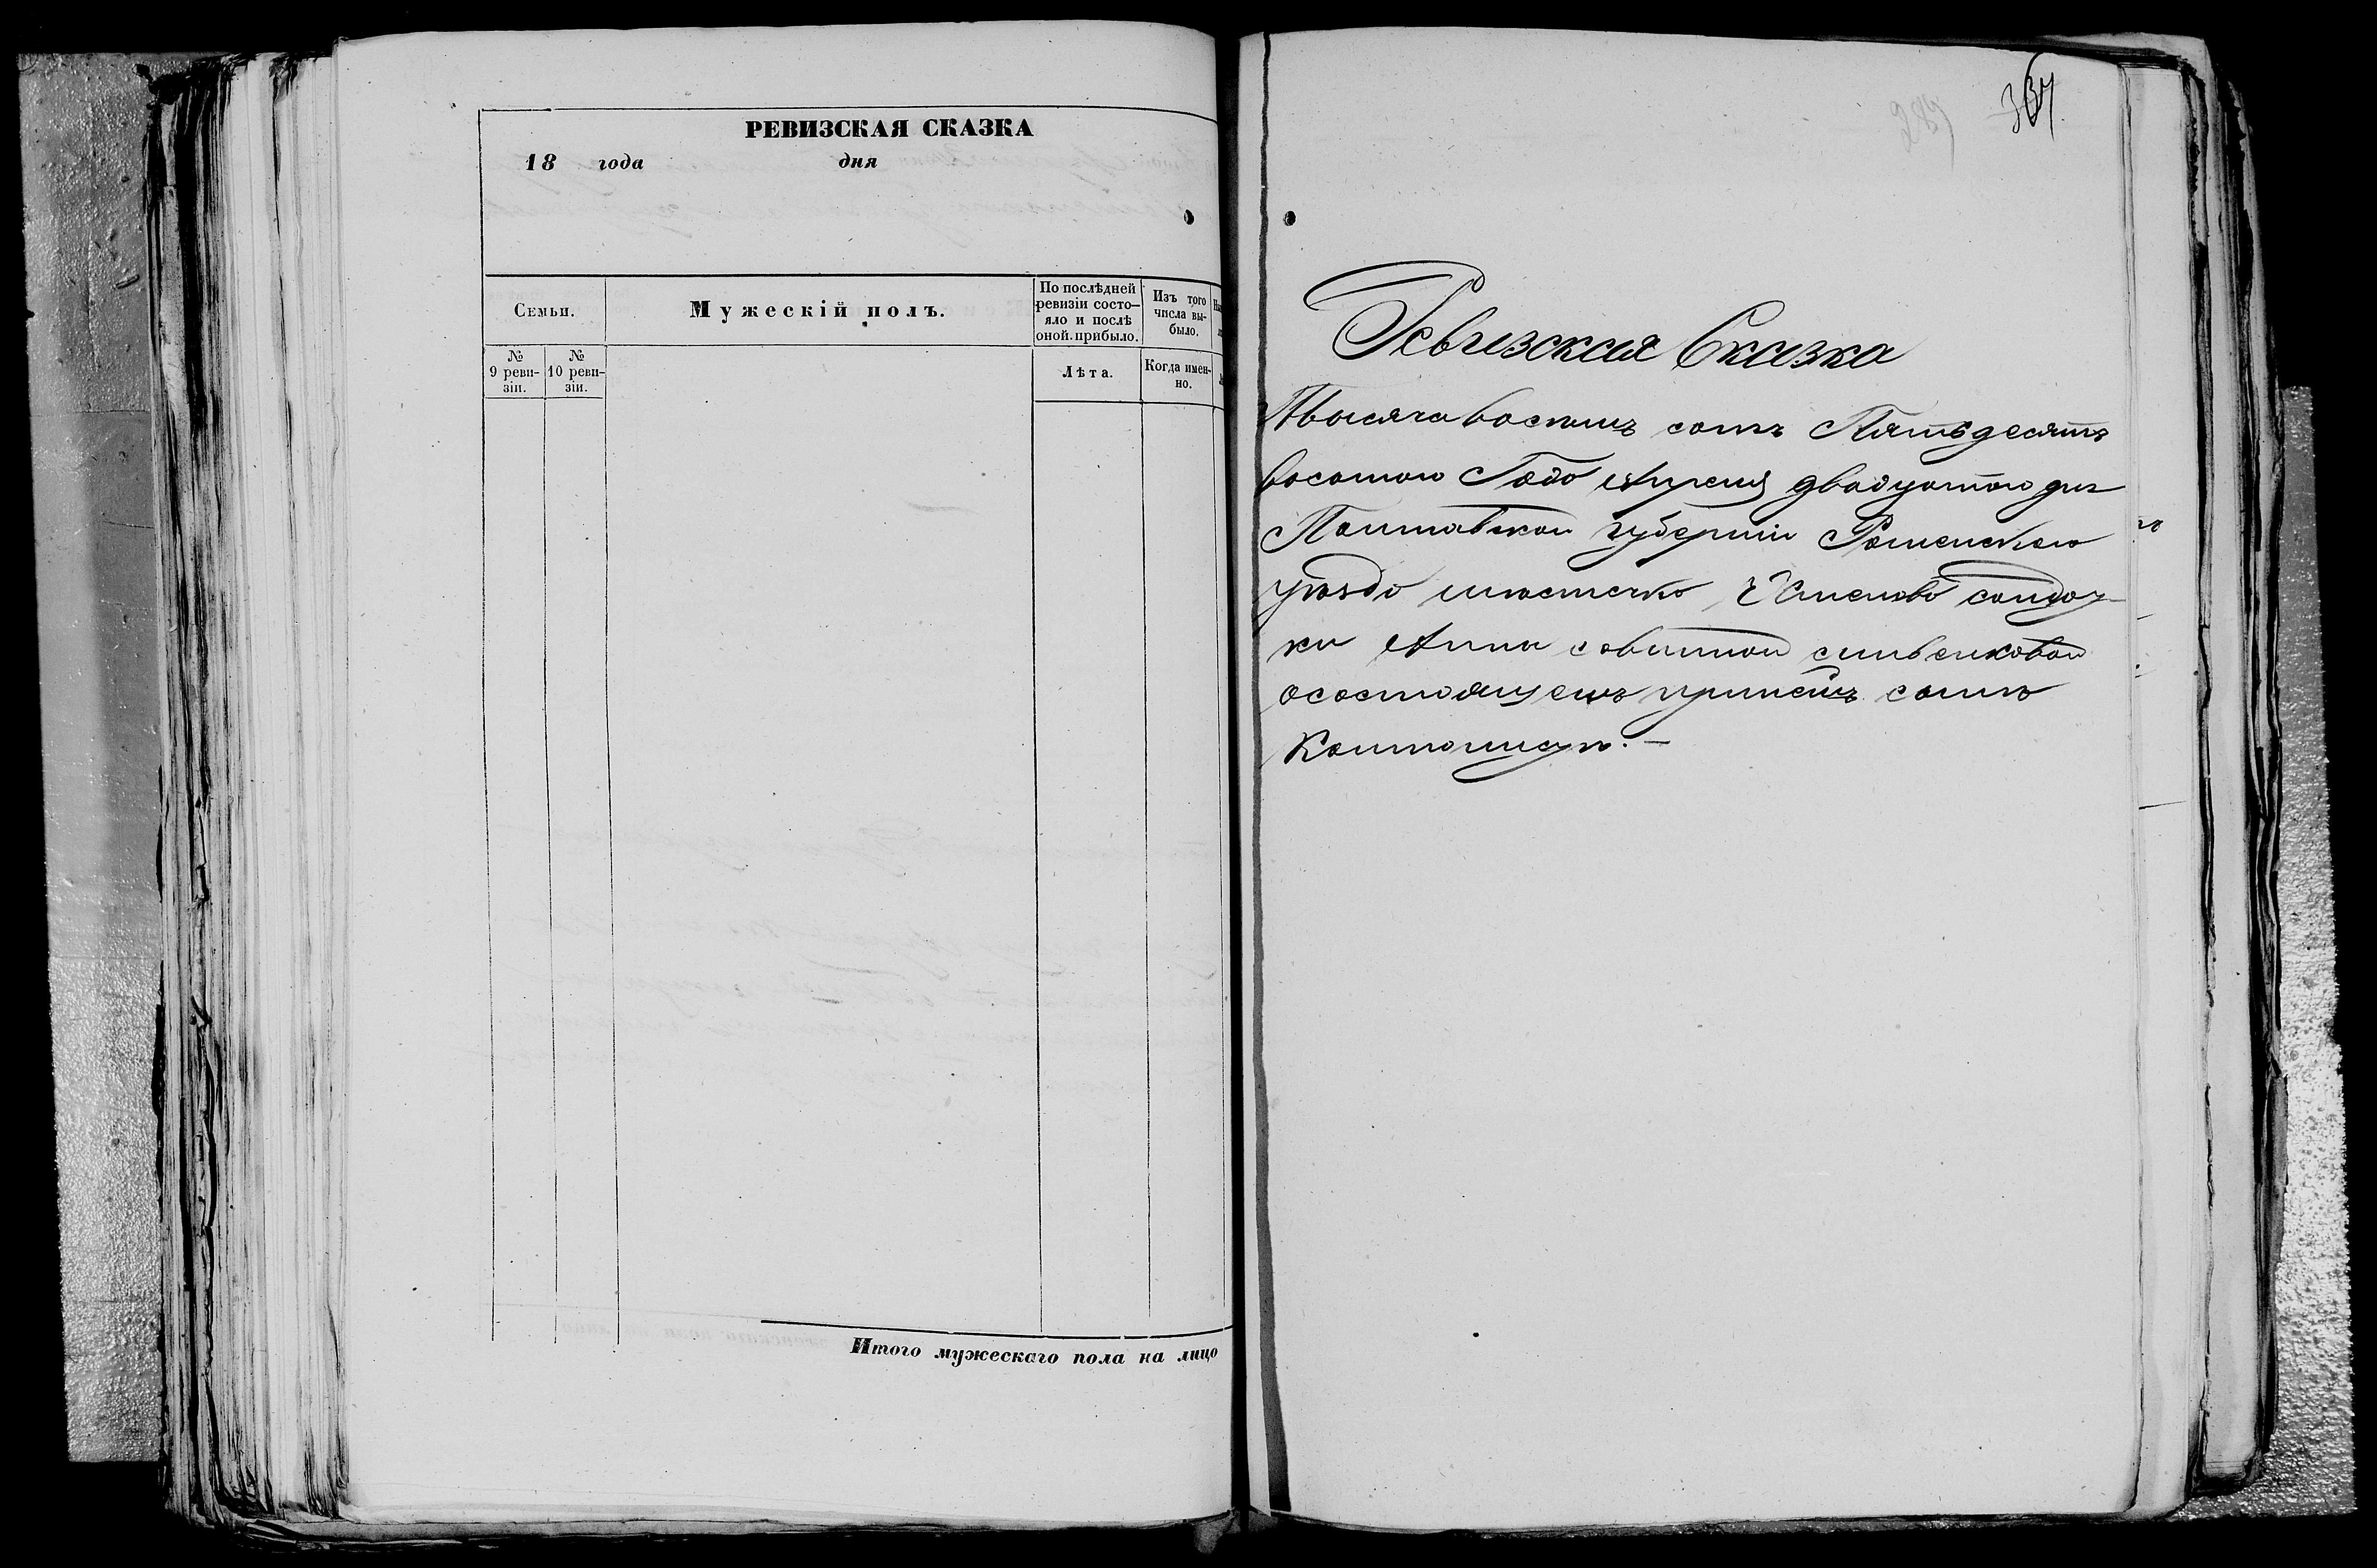 РЕВИЗСКАЯ СКАЗКА
18 года дня
Семьи.
Мужескій полъ.
По послѣдней
ревизіи состо-
яло и послѣ
оной прибыло.
Изъ того
числа вы-
было.
№
9 реви-
зіи.
№
10 реви-
зіи.
Лѣта.
Когда имен-
но.
Итого мужескаго пола на лицо
Ревизская Сказка
Тысяча восемъ сотъ Пятьдесятъ
восмого Года Апреля двадцатого дня
Полтавской губерніи Роменского
уѣзда местечка солдат-
ки Анны Савиной
осостоящемъ принейъ